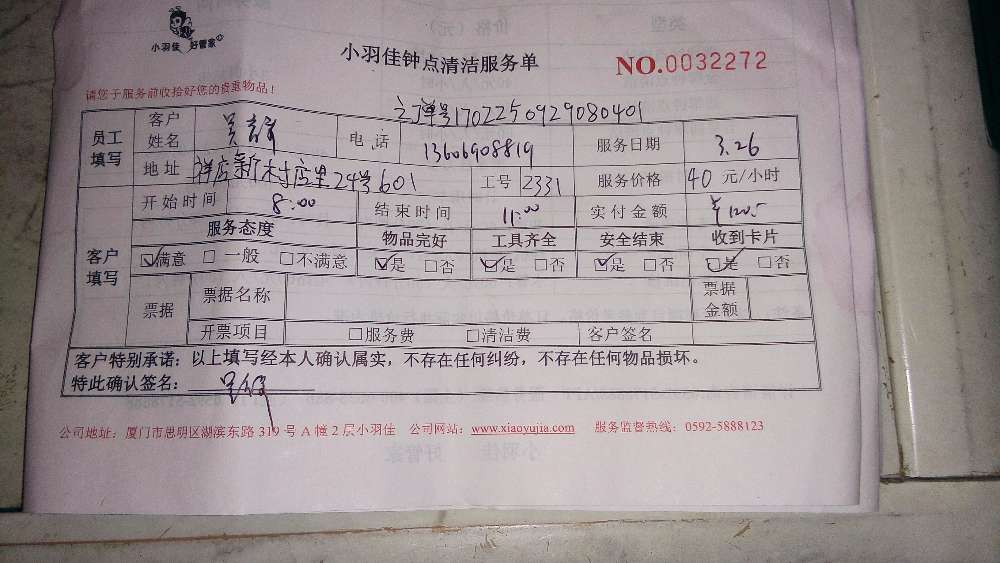 小羽佳 好管家
小羽佳钟点清洁服务单
NO.0032272
请您于服务前收拾好您的贵重物品！
订单号1702250929080401
员工填写 客户姓名 吴 电话 13606908819 服务日期 3.26
地址 祥店新村店里24号601 工号 2331 服务价格 40 元/小时
开始时间 8:00 结束时间 11:00 实付金额 ¥120.-
客户填写 服务态度 物品完好 工具齐全 安全结束 收到卡片
☑满意 □一般 □不满意 ☑是 □否 ☑是 □否 ☑是 □否 ☑是 □否
票据 票据名称 票据金额
开票项目 □服务费 □清洁费 客户签名
客户特别承诺：以上填写经本人确认属实，不存在任何纠纷，不存在任何物品损坏。
特此确认签名：
公司地址：厦门市思明区湖滨东路 319 号 A 幢 2 层小羽佳 公司网站：www.xiaoyujia.com 服务监督热线：0592-5888123